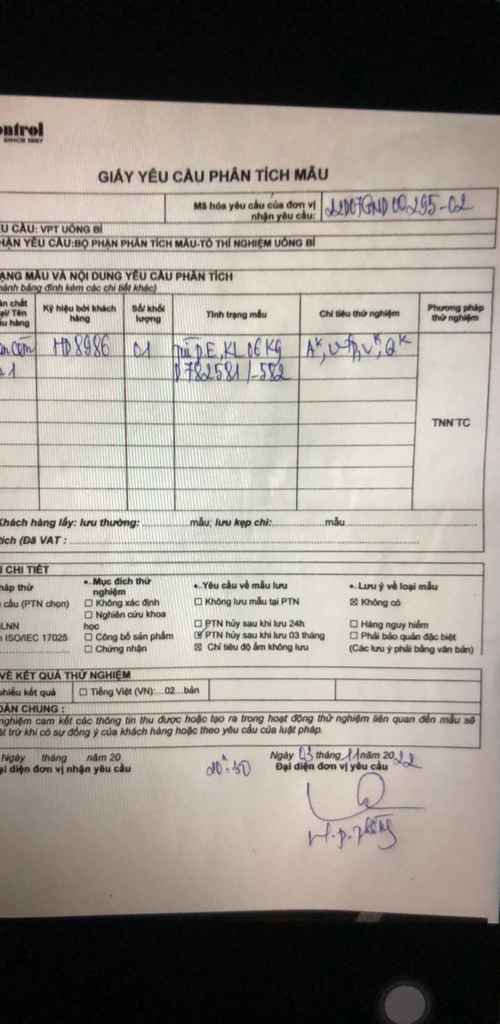 ontrol
SINCE 1997
GIẤY YÊU CẦU PHÂN TÍCH MẪU
Mã hóa yêu cầu của đơn vị nhận yêu cầu: 22D07GND00295-02
U CẦU: VPT UÔNG BÍ
HẬN YÊU CẦU:BỘ PHẬN PHÂN TÍCH MẪU-TỔ THÍ NGHIỆM UÔNG BÍ
ẠNG MẪU VÀ NỘI DUNG YÊU CẦU PHÂN TÍCH
hành bảng đính kèm các chi tiết khác)
ản chất
ại/ Tên
ẫu hàng
Ký hiệu bởi khách hàng
Số/ khối lượng
Tình trạng mẫu
Chỉ tiêu thử nghiệm
Phương pháp thử nghiệm
HD8986
01
túi P.E, KL 06 Kg
782581/-582
TNN TC
Khách hàng lấy: lưu thường: mẫu; lưu kẹp chì: mẫu
tích (Đã VAT :
CHI TIẾT
háp thử
cầu (PTN chọn)
LNN
ISO/IEC 17025
Mục đích thử nghiệm
Không xác định
Nghiên cứu khoa học
Công bố sản phẩm
Chứng nhận
Yêu cầu về mẫu lưu
Không lưu mẫu tại PTN
PTN hủy sau khi lưu 24h
PTN hủy sau khi lưu 03 tháng
Chỉ tiêu độ ẩm không lưu
Lưu ý về loại mẫu
Không có
Hàng nguy hiểm
Phải bảo quản đặc biệt
(Các lưu ý phải bằng văn bản)
VỀ KẾT QUẢ THỬ NGHIỆM
phiếu kết quả
Tiếng Việt (VN):...02...bản
OẢN CHUNG :
nghiệm cam kết các thông tin thu được hoặc tạo ra trong hoạt động thử nghiệm liên quan đến mẫu sẽ
ật trừ khi có sự đồng ý của khách hàng hoặc theo yêu cầu của luật pháp.
Ngày tháng năm 20
ại diện đơn vị nhận yêu cầu
20h30
Ngày 03 tháng 11 năm 2022
Đại diện đơn vị yêu cầu